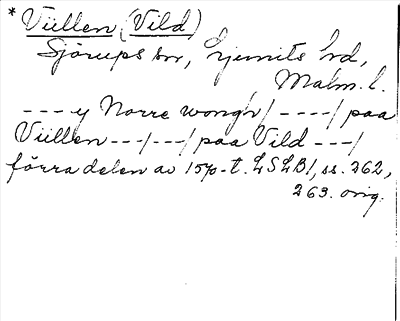 * Vüllen (Vild)
Sjörups sn, Ljunits hd,
Malm. l.
--- y Norre wongh/----/ paa
Vüllen ---/---/ paa Vild ---/
förra delen av 1570-t. LSLB1, ss. 262,
263. orig.